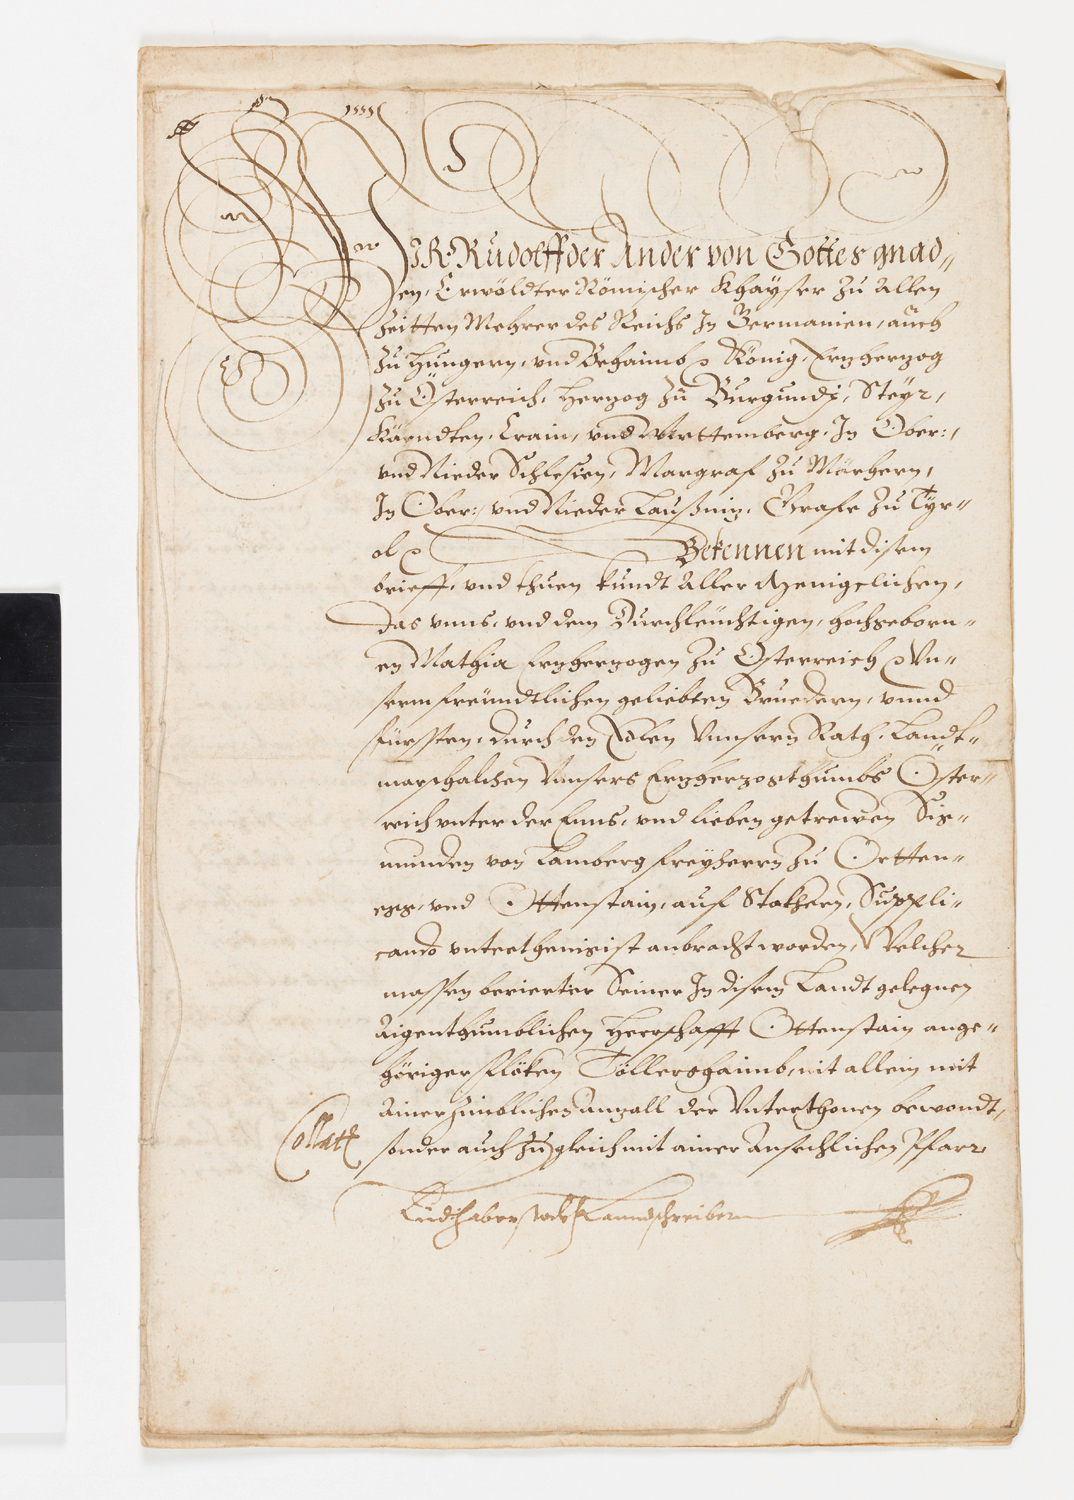 WIR Rudolff der Ander von Gottes gnad„
en, Erwöldter Römischer Khayser zu Allen
Zeitten Mehrer des Reichs In Germanien, auch
zu Hungern, und Behaimb König, Erzherzog
zu Österreich, Herzog zu Burgundj, Steyr,
Kärndten, Crain, und Wirttemberg, In Ober:,
und Nieder Schlesien, Margraf zu Märhern,
In Ober: und Nieder Laußniz, Grafe zu Tyr„
ol Bekennen mit disem
brieff, und thuen kundt Aller Menigclichen,
das unns, und dem Durchleüchtigen, hochgeborn„
en Mathia Erzherzogen zu Österreich Un„
serm freündtlichen geliebten Bruedern, unnd
fürsten, durch den Edlen Unnsern Rath, Landt„
marschalchen Unnsers Erzherzogthumbs Öster„
reich unter der Enns, und lieben getrewen Sig„
munden von Lamberg freyherrn zu Ortten„
egg, und Ottenstain, auf Stokhern, Suppli„
cando unterthenigist anbracht worden, Welcher
massen berierter Seiner In disem Landt gelegnen
Aigenthumblichen Herrschafft Ottenstain ange„
höriger flöken Döllershaimb, nit allein mit
Ainer zimblichen anzall der Unterthonen bewondt,
sonder auch zugleich mit ainer Ansechlichen Pfarr
Collat:
Landschreiber